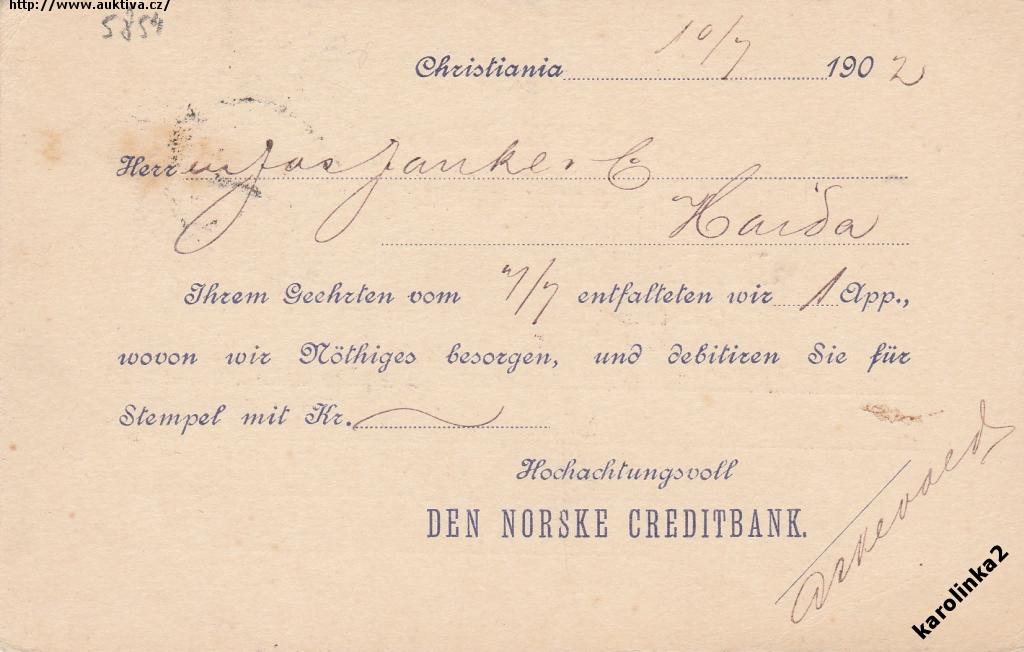 http://www.auktiva.cz/
5854
Christiania 10/7 1902
Herren Jos Janke & C
Haida
Ihrem Geehrten vom 7/7 entfalteten wir 1 App.,
wovon wir Nöthiges besorgen, und debitiren Sie für
Stempel mit Kr.
Hochachtungsvoll
DEN NORSKE CREDITBANK.
karolinka2